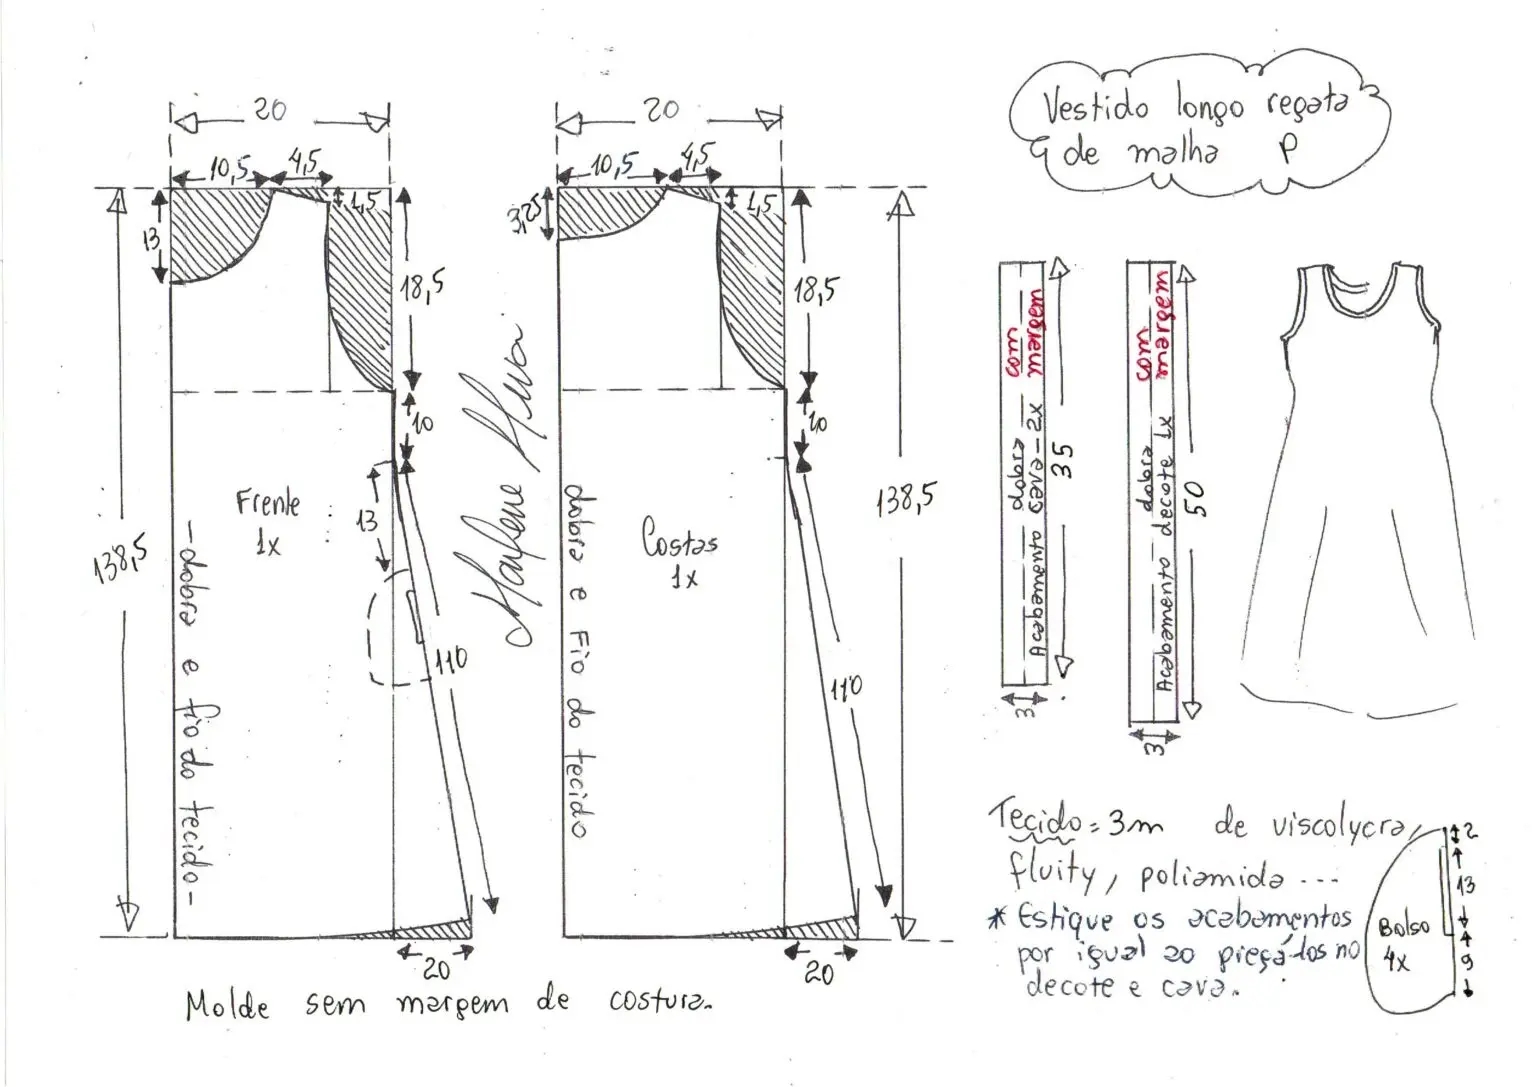 Vestido longo regata
de malha P
20
10,5
4,5
1,5
13
18,5
10
13
138,5
Frente
1x
-dobra e fio do tecido-
110
20
Marlene Mukai
20
10,5
4,5
1,5
3,25
18,5
10
138,5
Costas
1x
dobra e Fio do tecido
110
20
com
margem
dobra
Acabamento cava-2x
35
3
com
margem
dobra
Acabamento decote 1x
50
3
Tecido=3m de viscolycra,
fluity, poliamida ...
* Estique os acabamentos
por igual ao pregá-los no
decote e cava.
Bolso
4x
2
13
9
Molde sem margem de costura.